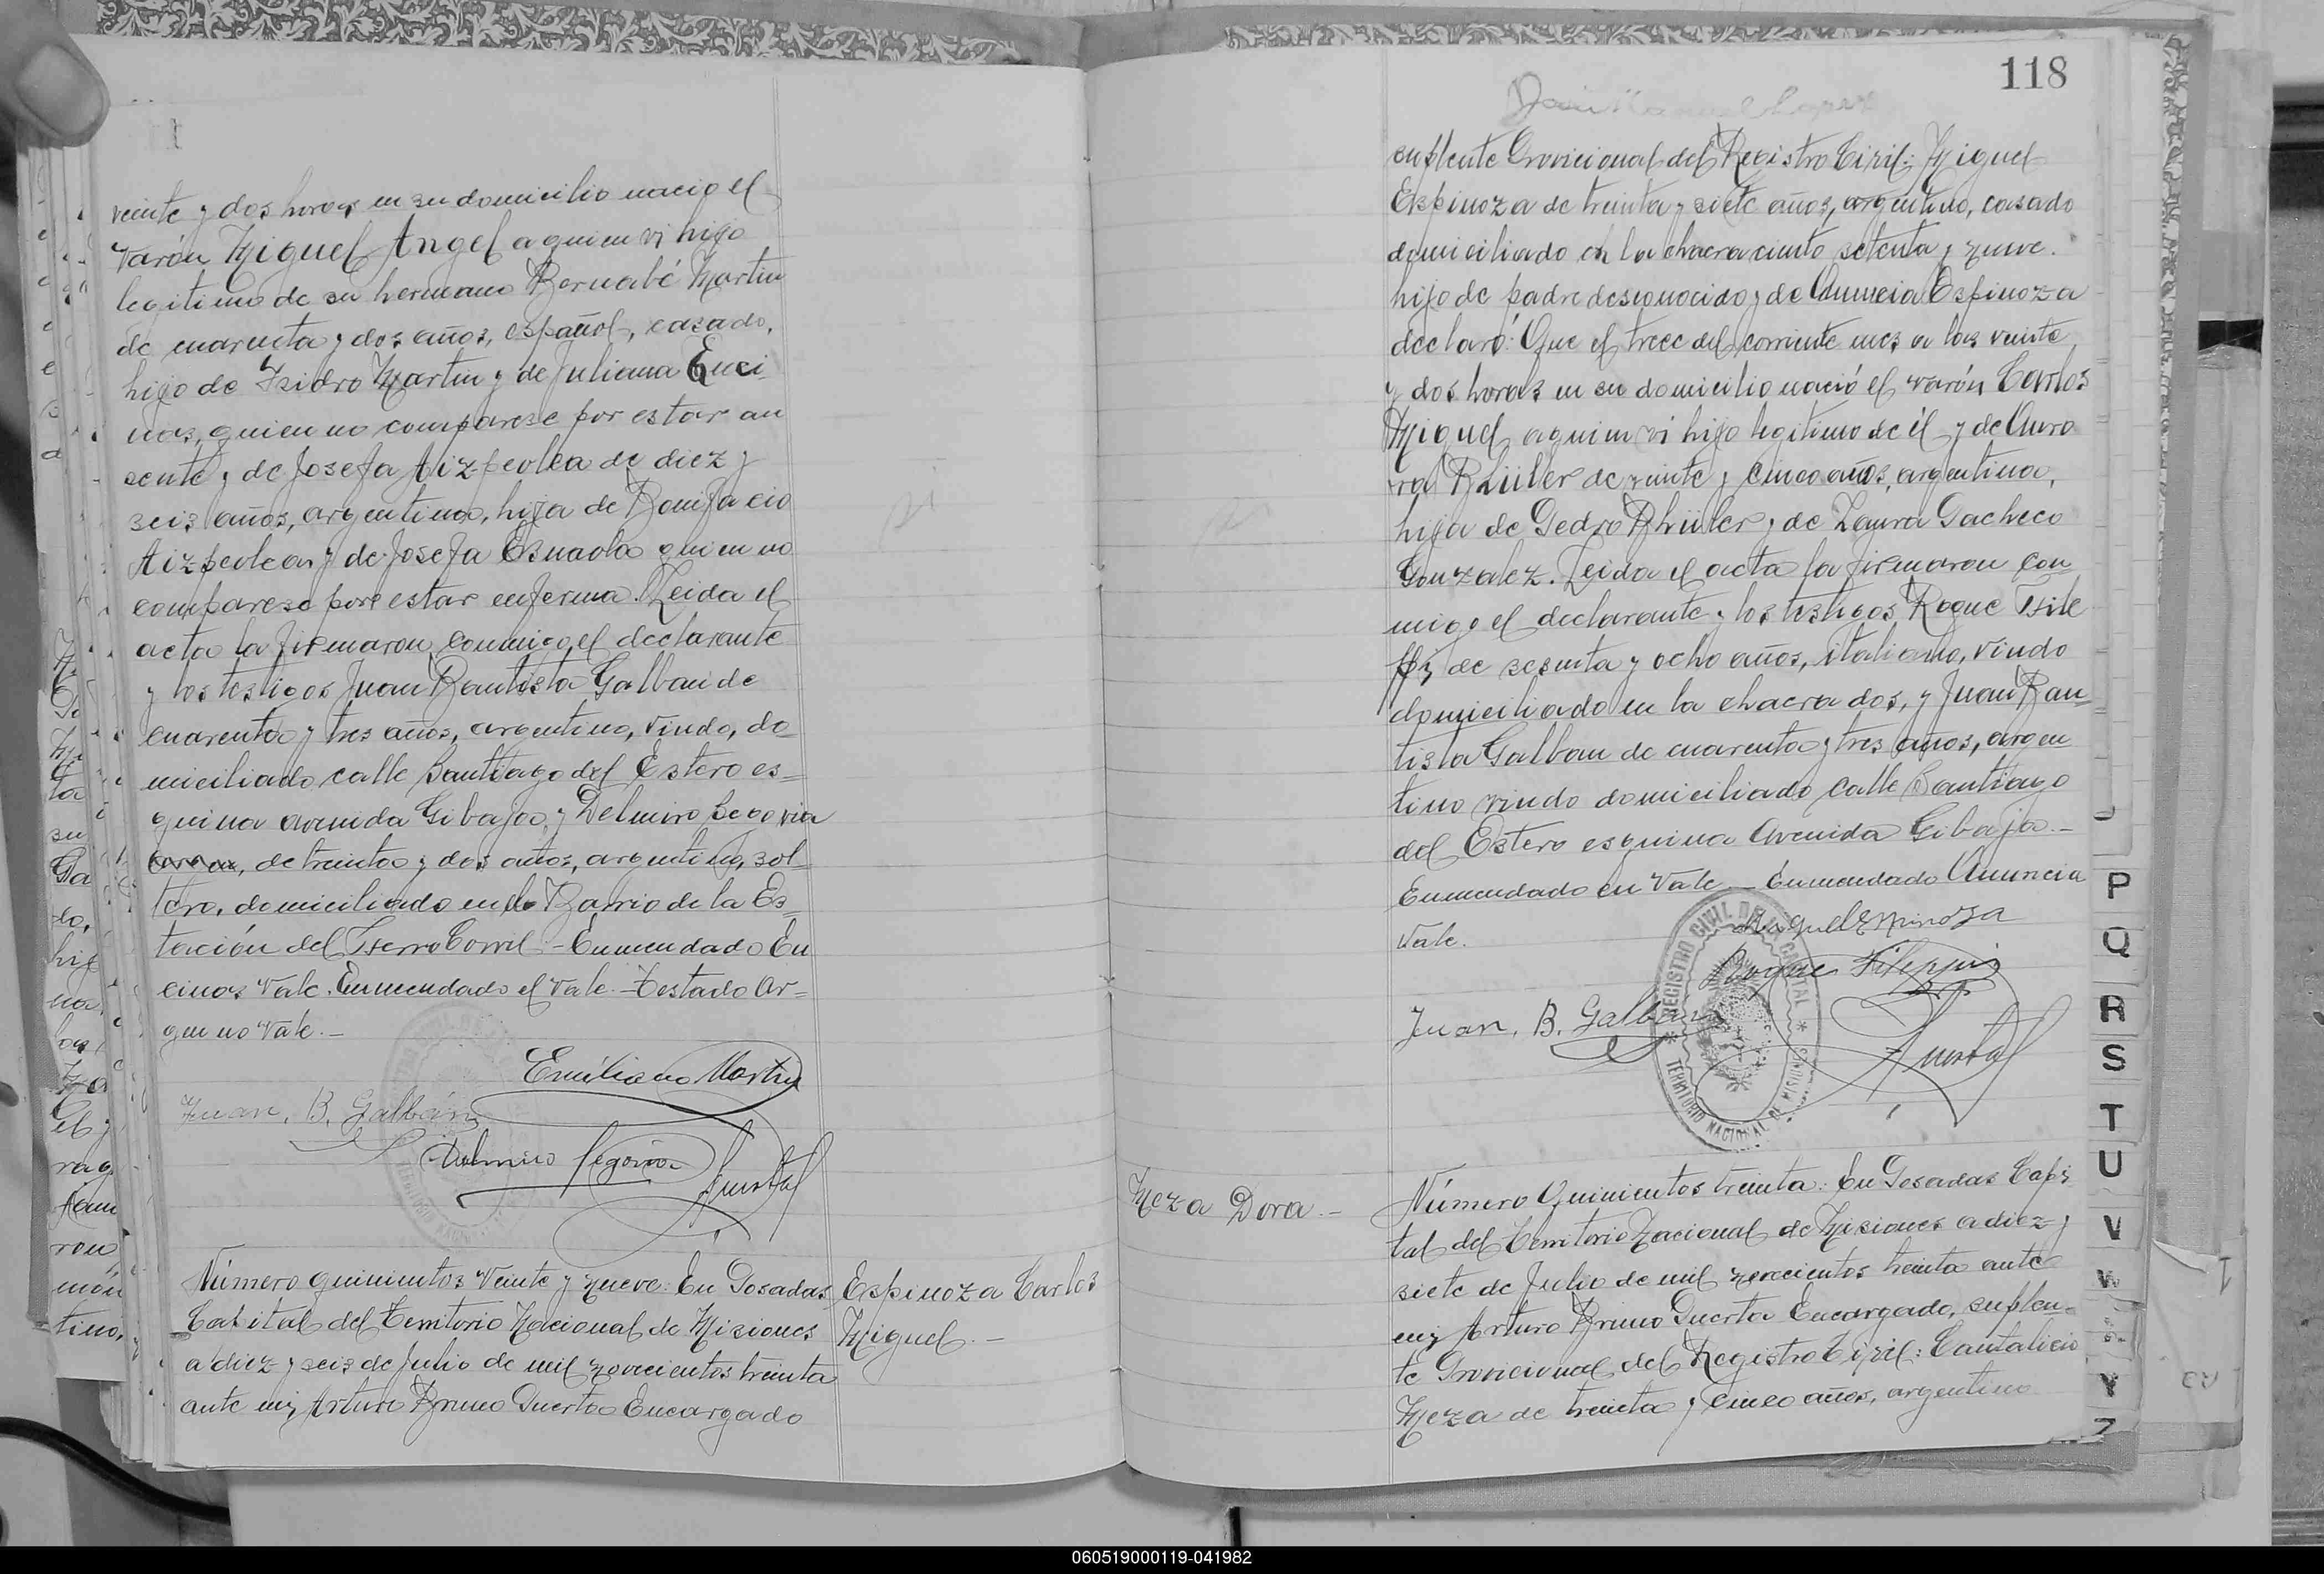 veinte y dos horas en su domicilio nacio el
varón Miguel Angel a quien vi hijo
legitimo de su hermano Bernabé Martin
de cuarenta y dos años, español, casado,
hijo de Isidro Martin y de Juliana Enci
nas, quien no comparese por estar au
sente y de Josefa Aizpeolea de diez y
seis años, argentina, hija de Bonifacio
Aizpeolea y de Josefa Osnaola quien no
comparese por estar enferma. Leida el
acta la firmaron conmigo el declarante
y los testigos Juan Bautista Galban de
cuarenta y tres años, argentino, viudo, do
miciliado calle Santiago del Estero es=
quina avenida Gibaja, y Delmiro Segovia
de treinta y dos años, argentino, sol-
tero, domiciliado en el Barrio de la Es=
tación del Ferro Carril - Enmendado En
cinas Vale. Enmendado el Vale - Testado Ar=
gen no Vale. -
Emiliano Martin
Juan, B, Galbán
Delmiro Segovia
Número quinientos veinte y nueve: En Posadas
Capital del Territorio Nacional de Misiones
a diez y seis de Julio de mil novecientos treinta
ante mi, Arturo Bruno Puerta Encargado
Espinoza Carlos
Miguel. -
118
suplente Provicional del Registro Civil: Miguel
Espinoza de treinta y siete años, argentino, casado
domiciliado en la chacra ciento setenta y nueve.
hijo de padre desconocido y de Anuncia Espinoza
declaró: Que el trece del corriente mes a las veinte
y dos horas en su domicilio nació el varón Carlos
Miguel a quien vi hijo legitimo de él y de Auro
ra Bhüler de veinte y cinco años, argentina,
hija de Pedro Bhüler y de Laura Pacheco
Gonzalez. Leida el acta la firmaron con
migo el declarante y los testigos Roque File
ppi, de sesenta y ocho años, italiano, viudo
domiciliado en la chacra dos, y Juan Bau=
tista Galban de cuarenta y tres años, argen
tino viudo domiciliado calle Santiago
del Estero esquina Avenida Gibaja. -
Enmendado en Vale - Enmendado Anuncia
Vale.
Miguel Espinoza
Roque Filippi
Juan, B. Galbán
REGISTRO CIVIL DE LA CAPITAL
TERRITORIO NACIONAL DE MISIONES
Meza Dora. -
Número Quinientos treinta: En Posadas Capi
tal del Territorio Nacional de Misiones a diez y
siete de Julio de mil novecientos treinta ante
mi, Arturo Bruno Puerta Encargado, suplen=
te Provicional del Registro Civil: Cantalicio
Meza de treinta y cinco años, argentino
P
Q
R
S
T
U
V
W
Y
Z
060519000119-041982